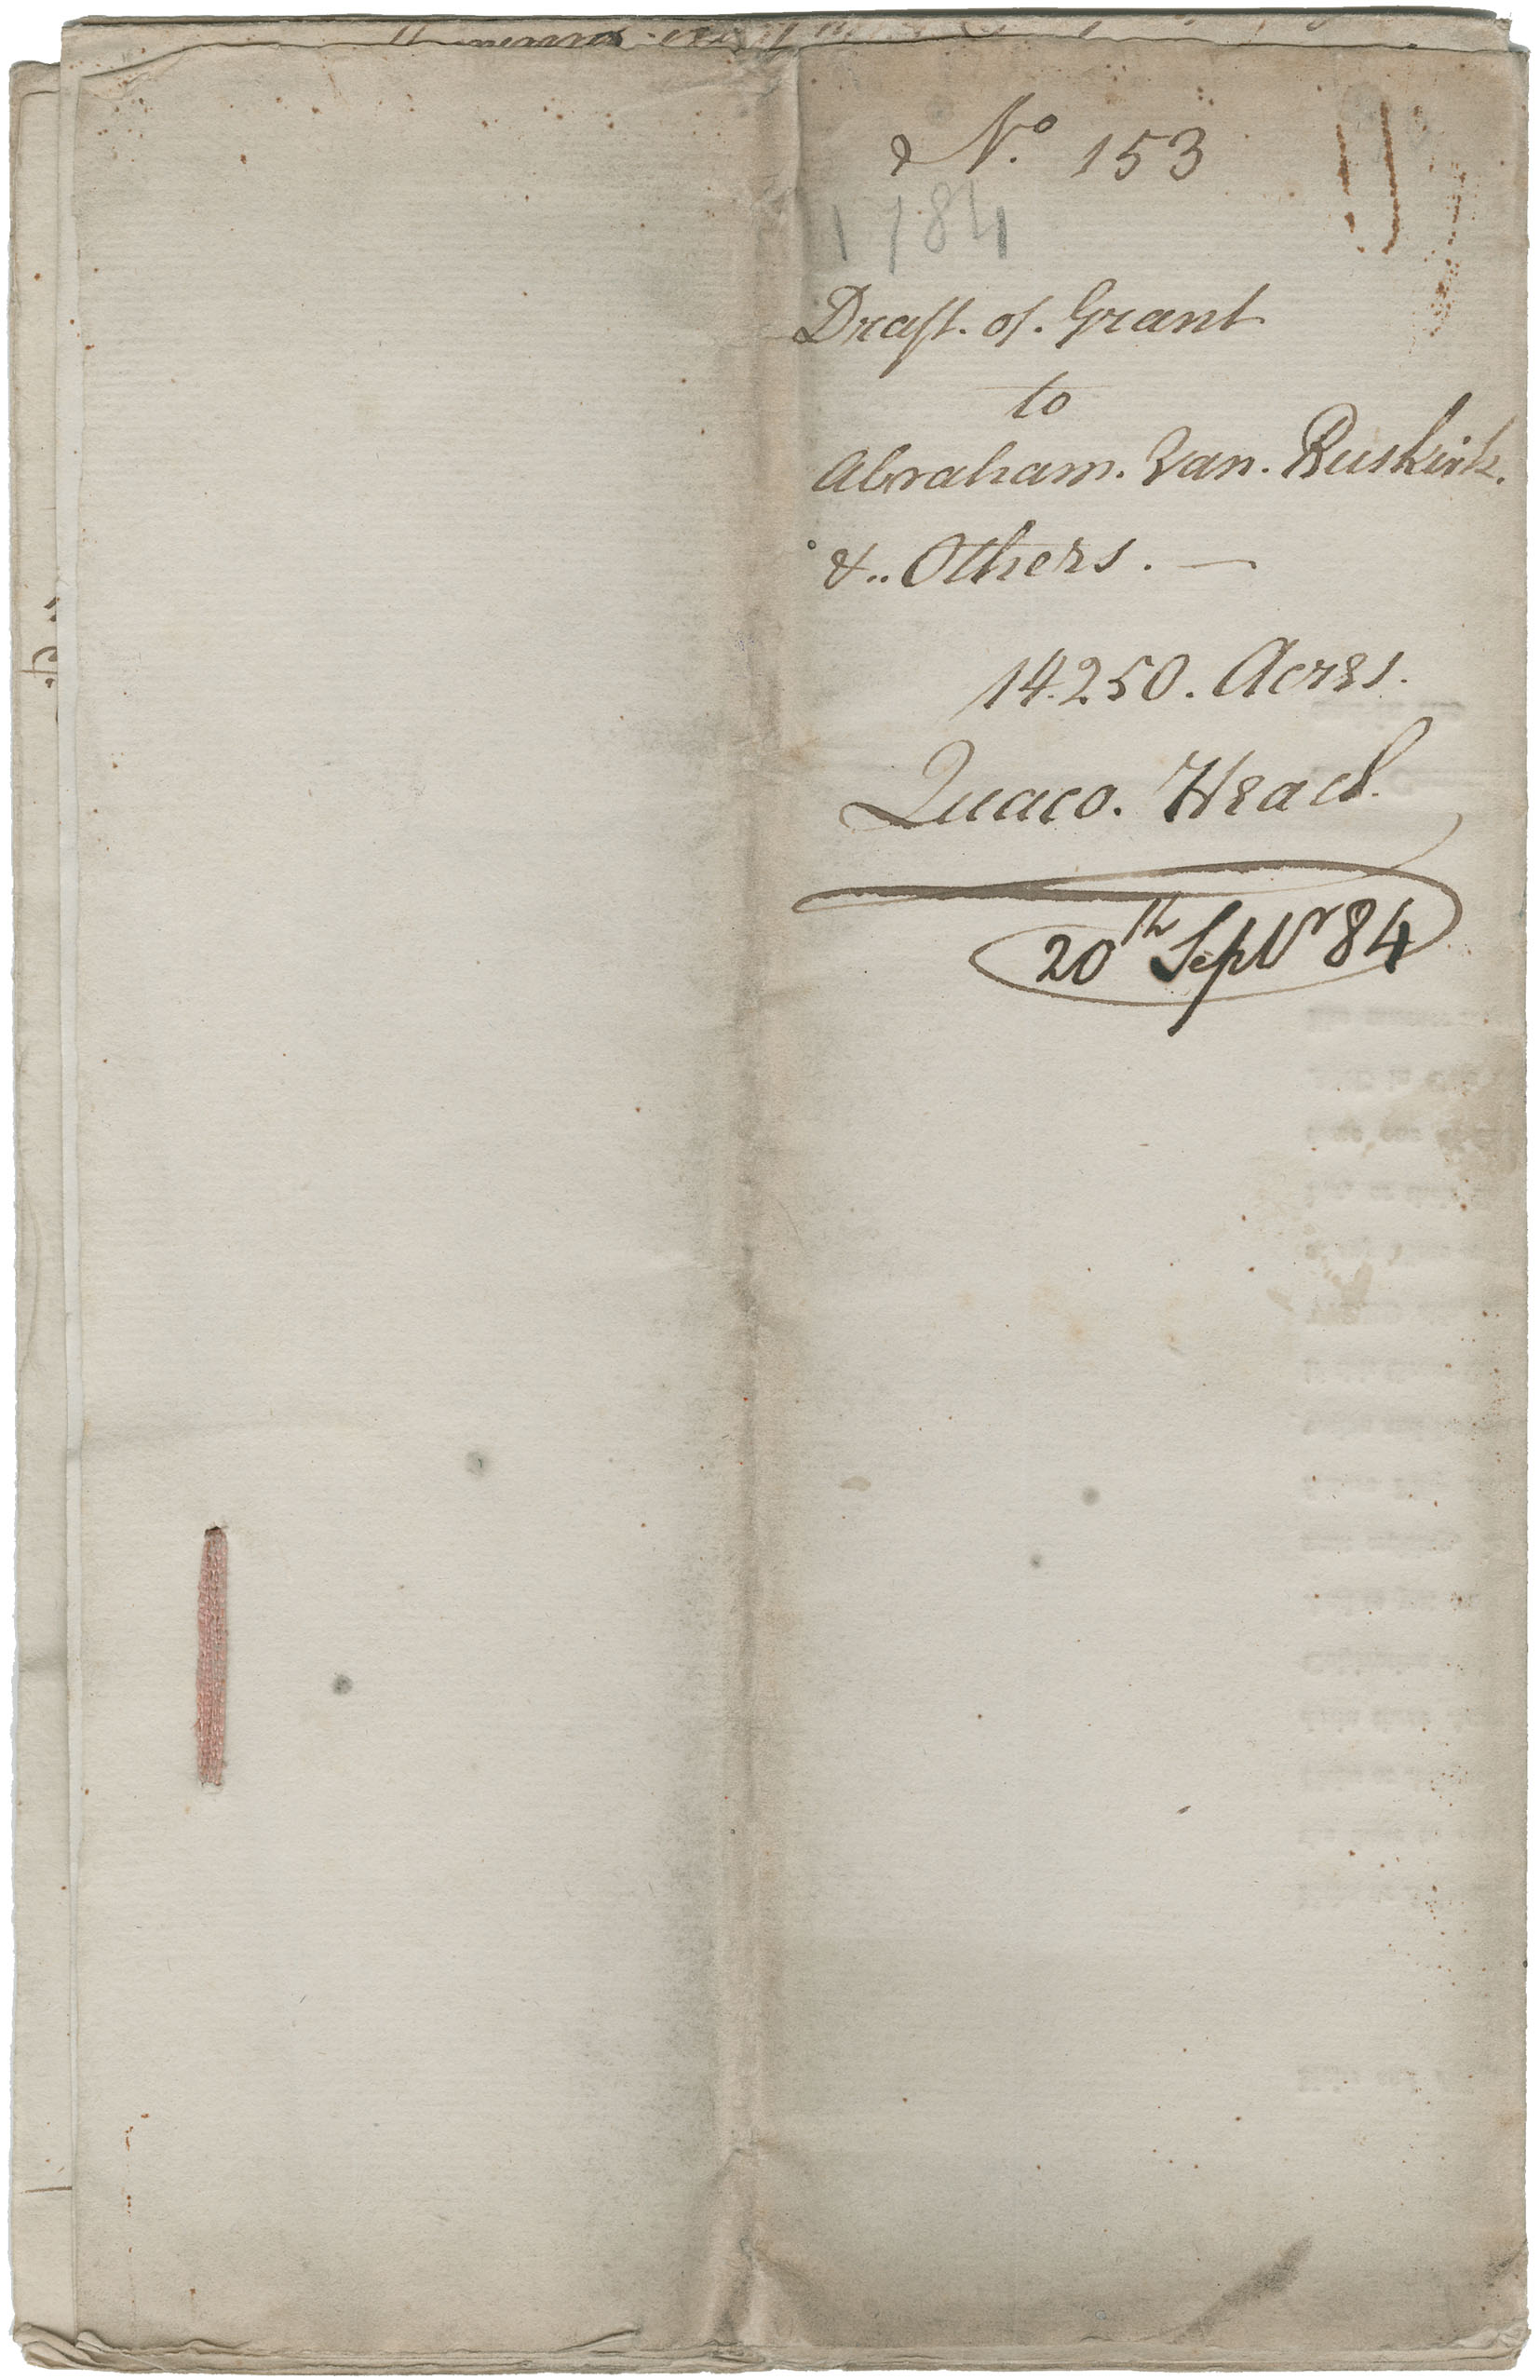 No. 153
1784
Draft. of. Grant
to
Abraham. Van. Buskirk.
&.. Others. —
14.250. Acres.
Quaco. Head.
20th Septr 84